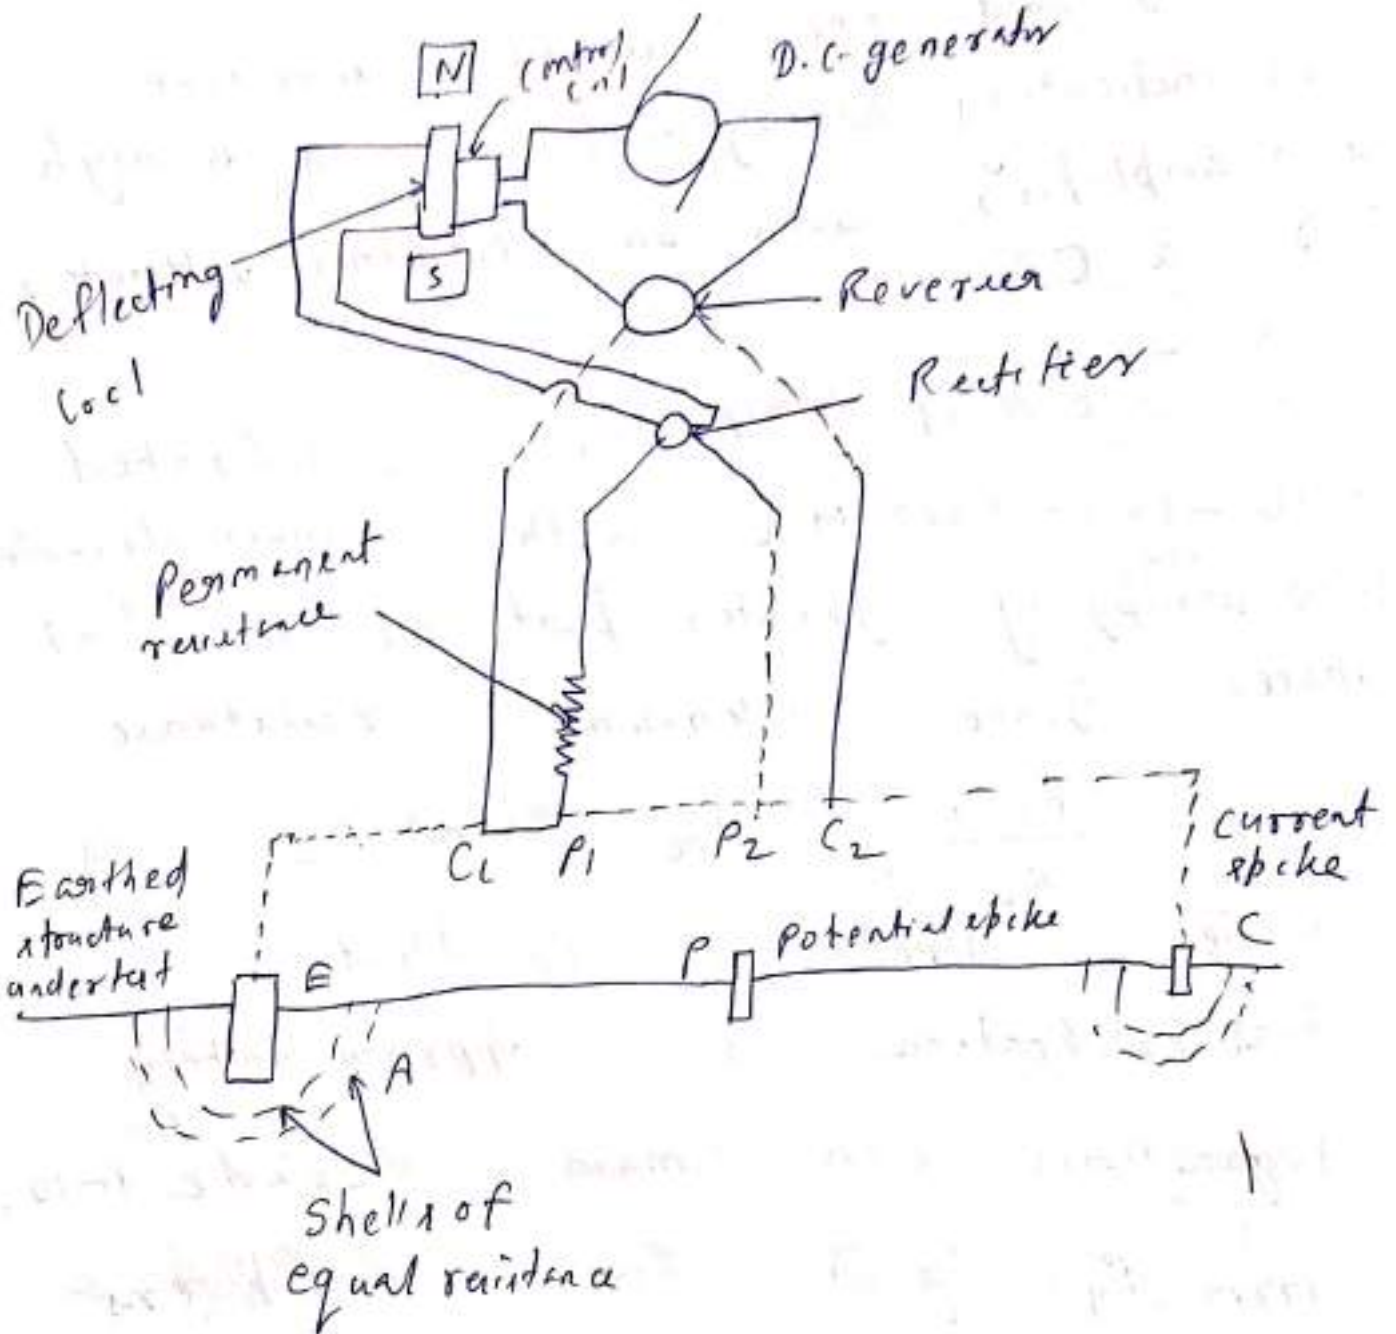 N
Control
Coil
D.C. generator
Deflecting
Coil
S
Reverser
Rectifier
Permanent
resistance
C1
P1
P2
C2
Current
spike
C
Earthed
structure
undertest
E
P
Potential spike
A
Shells of
equal resistance